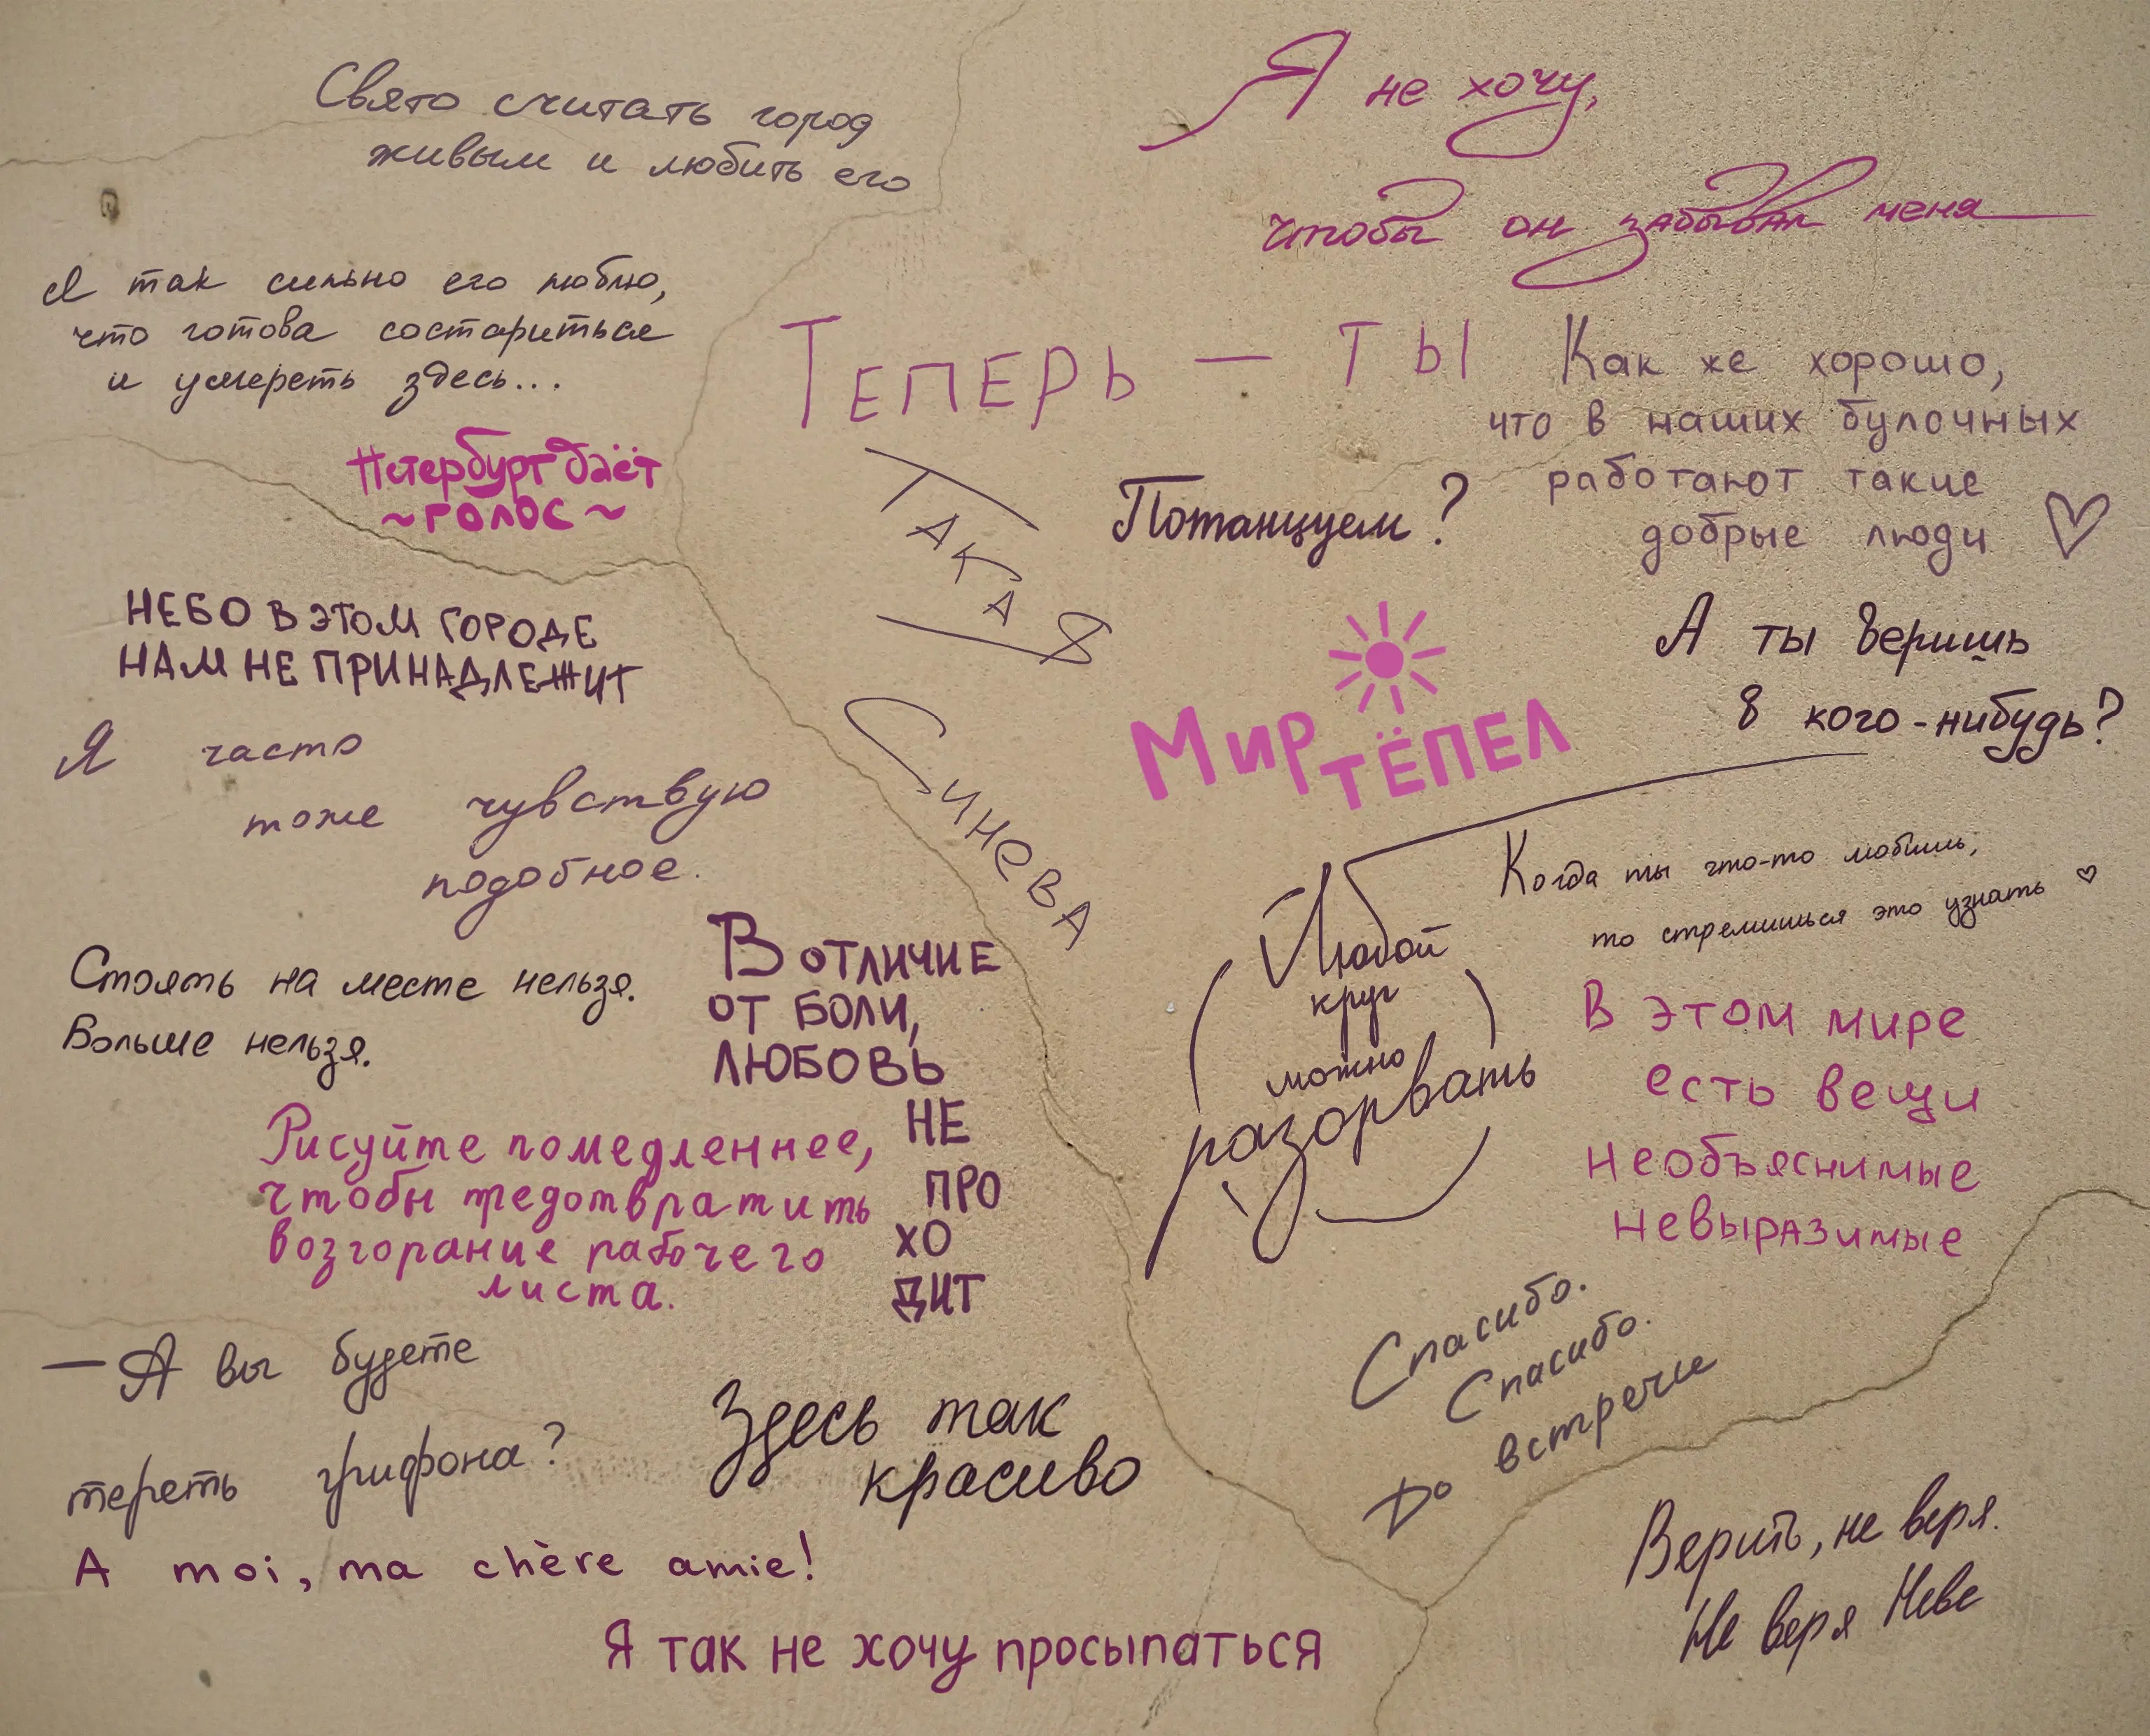 Свято считать город
живым и любить его
Я не хочу,
чтобы он забывал меня
Я так сильно его люблю,
что готова состариться
и умереть здесь...
Петербург даёт
~ голос ~
Теперь — ты
Такая
Синева
Потанцуем?
Как же хорошо,
что в наших булочных
работают такие
добрые люди ♡
НЕБО В ЭТОМ ГОРОДЕ
НАМ НЕ ПРИНАДЛЕЖИТ
Мир
тёпел
А ты веришь
в кого-нибудь?
Я часто
тоже чувствую
подобное.
Когда ты что-то любишь,
то стремишься это узнать ♡
Стоять на месте нельзя.
Больше нельзя.
В отличие
от боли,
любовь
не
про
хо
дит
Любой
круг
можно
разорвать
В этом мире
есть вещи
необъяснимые
невыразимые
Рисуйте помедленнее,
чтобы предотвратить
возгорание рабочего
листа.
Спасибо.
Спасибо.
До встречи
— А вы будете
тереть грифона?
Здесь так
красиво
A moi, ma chère amie!
Верить, не веря.
Не веря Неве
Я так не хочу просыпаться